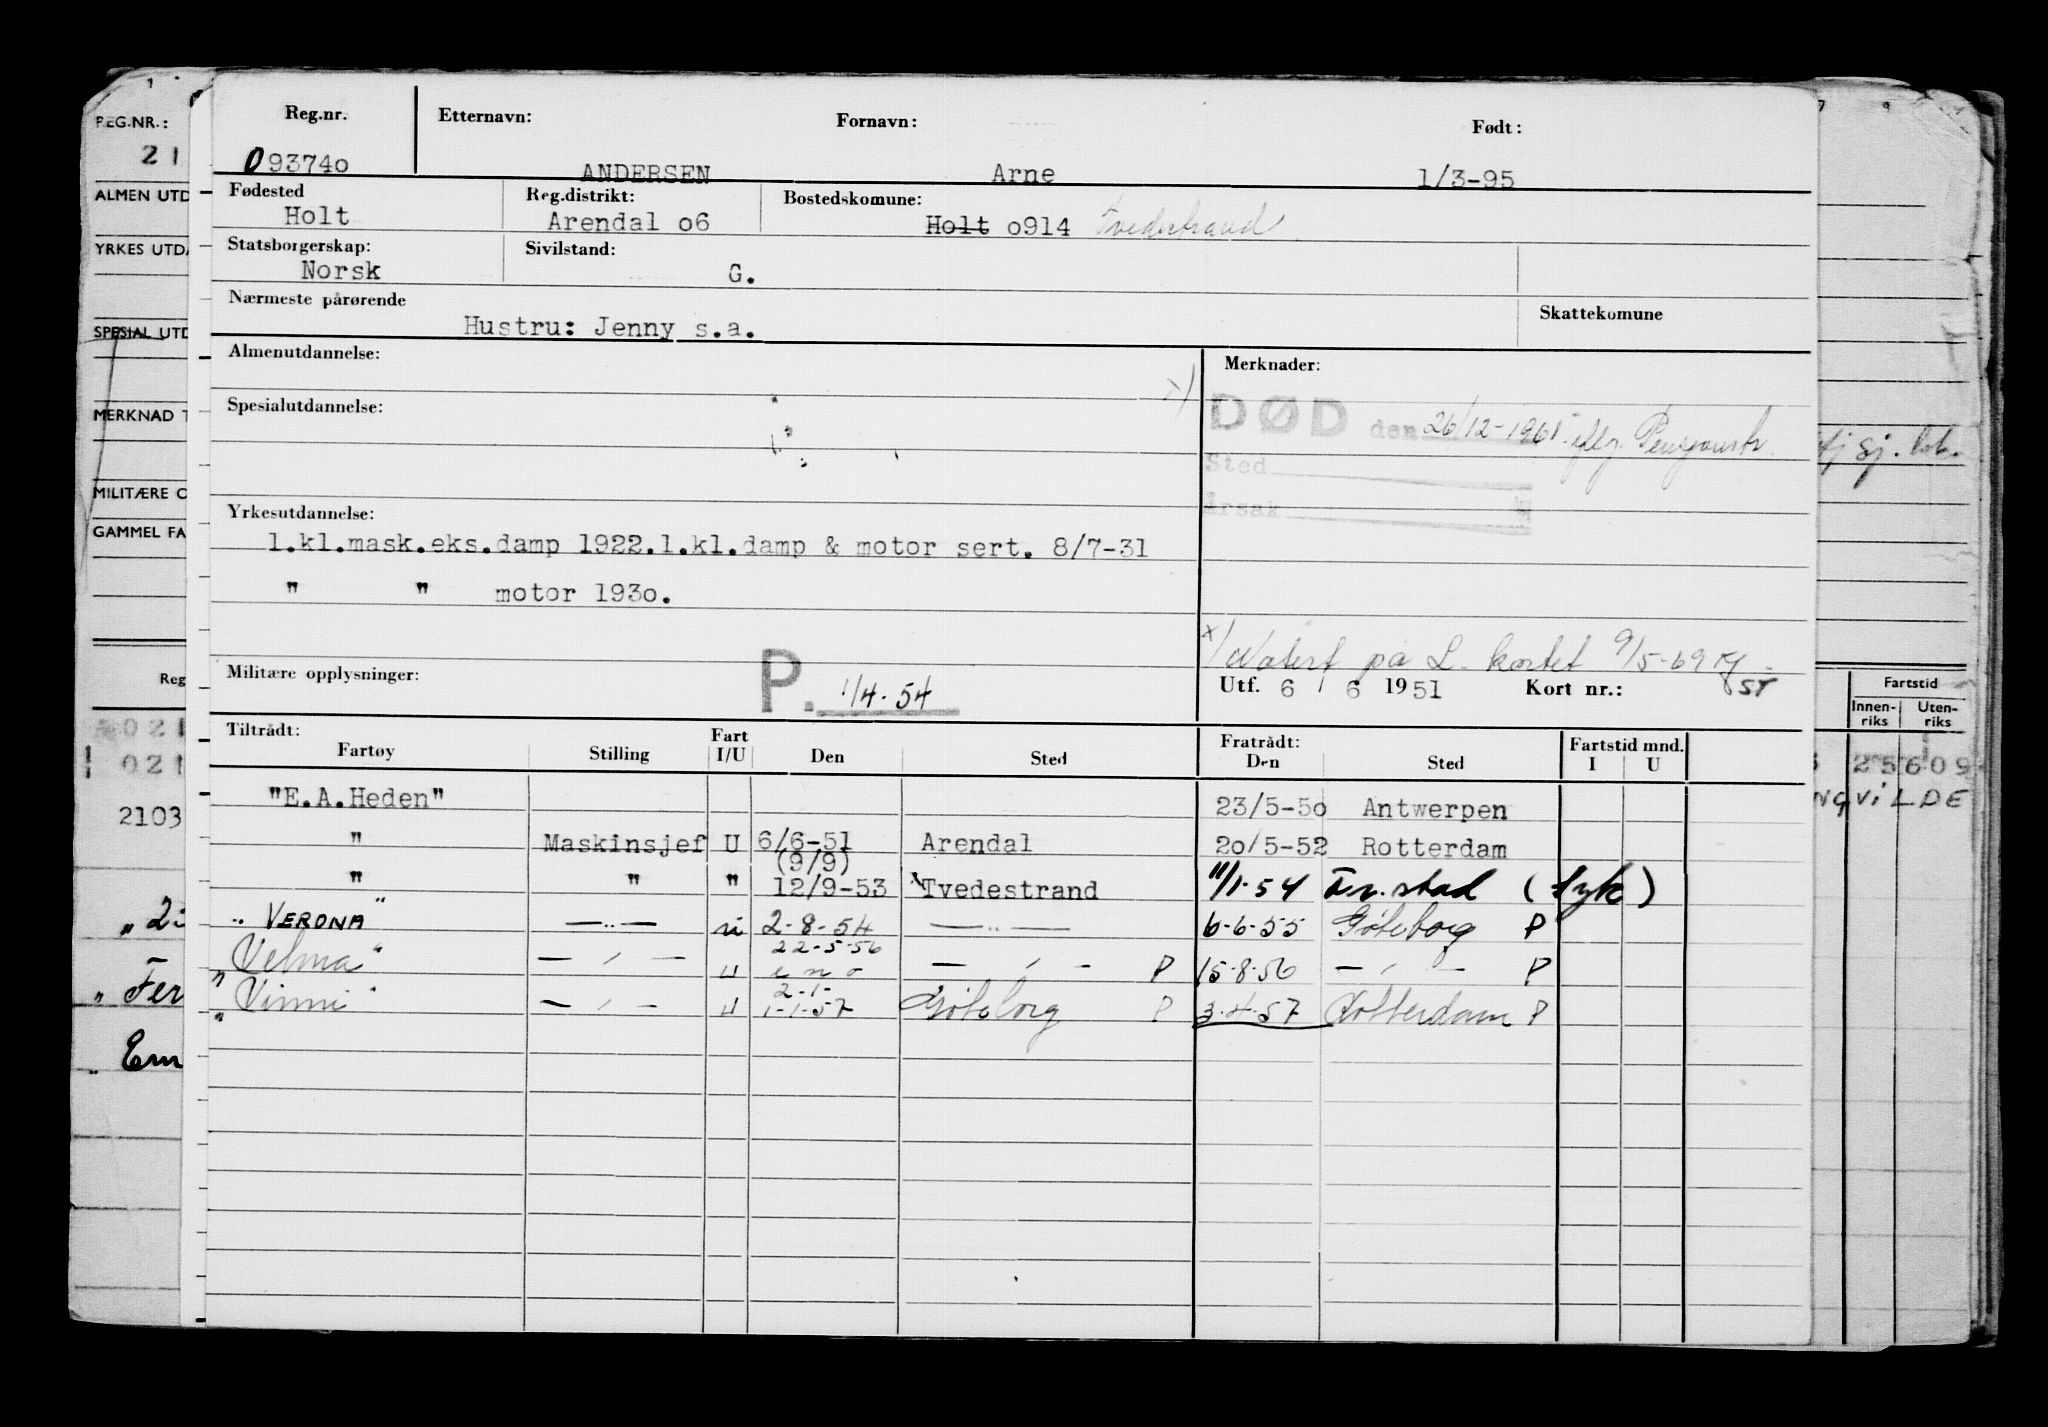 REG.NR.:
21
ALMEN UTD
YRKES UTDA
SPESIAL UTD
MERKNAD T
MILITÆRE O
GAMMEL FA
Reg
021
021
2103
Fer
Em
Reg.nr. Etternavn: Fornavn: Født:
093740 ANDERSEN Arne 1/3-95
Fødested Reg.distrikt: Bostedskomune:
Holt Arendal o6 Holt o914 Tvedestrand
Statsborgerskap: Sivilstand:
Norsk G.
Nærmeste pårørende Skattekomune
Hustru: Jenny s.a.
Almenutdannelse: Merknader:
x)
Spesialutdannelse: DØD den 26/12-1961
Sted
Årsak
Yrkesutdannelse:
1.kl.mask.eks.damp 1922.1.kl.damp & motor sert. 8/7-31
" " motor 193o.
x) Notert på L-kortet 9/5-69
Militære opplysninger: P. 1/4-54 Utf. 6 / 6 1951 Kort nr.: ST
Tiltrådt: Fart Fratrådt: Fartstid mnd.
Fartøy Stilling I/U Den Sted Den Sted I U
"E.A.Heden" 23/5-5o Antwerpen
" Maskinsjef U 6/6-51 Arendal 2o/5-52 Rotterdam
(9/9)
" " " 12/9-53 Tvedestrand 11/1-54 Fr.stad (syk)
"VERONA" —„— u 2-8-54 —„— 6-6-55 Göteborg P
22-5-56
"Velma" —„— u —„— P 15-8-56 —„— P
2-1-
"Vinni" —„— u 1-1-57 Göteborg P 3-4-57 Rotterdam P
Fartstid
Innen-riks Uten-riks
25609
VILDE